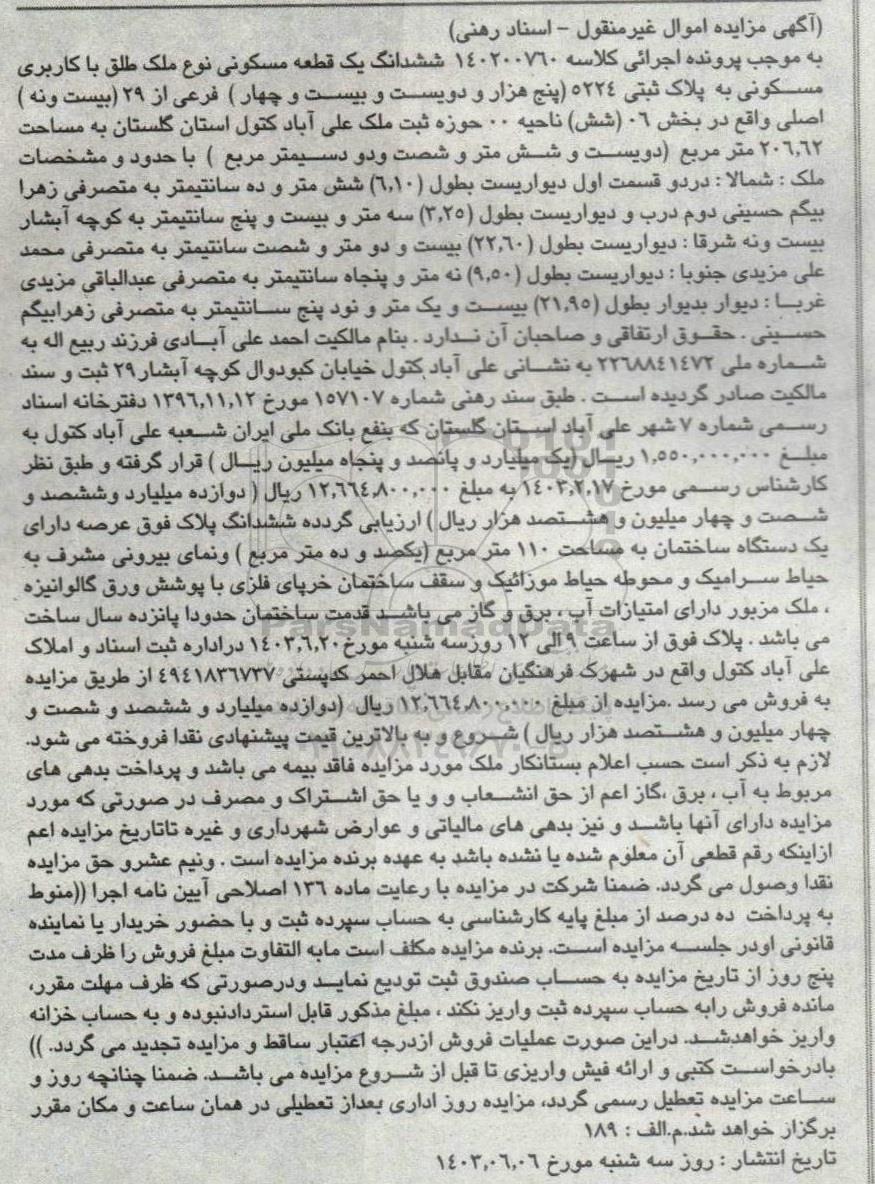 (آگهی مزایده اموال غیرمنقول - اسناد رهنی)
به موجب پرونده اجرائی کلاسه ۱۴۰۲۰۰۷۶۰ ششدانگ یک قطعه مسکونی نوع ملک طلق با کاربری
مسکونی به پلاک ثبتی ۵۲۲۴ (پنج هزار و دویست و بیست و چهار ) فرعی از ۲۹ (بیست ونه )
اصلی واقع در بخش ۰۶ (شش) ناحیه ۰۰ حوزه ثبت ملک علی آباد کتول استان گلستان به مساحت
۲۰۶,۶۲ متر مربع (دویست و شش متر و شصت ودو دسیمتر مربع ) با حدود و مشخصات
ملک : شمالا : دردو قسمت اول دیواریست بطول (۶,۱۰) شش متر و ده سانتیمتر به متصرفی زهرا
بیگم حسینی دوم درب و دیواریست بطول (۳,۲۵) سه متر و بیست و پنج سانتیمتر به کوچه آبشار
بیست ونه شرقا : دیواریست بطول (۲۲,۶۰) بیست و دو متر و شصت سانتیمتر به متصرفی محمد
علی مزیدی جنوبا : دیواریست بطول (۹,۵۰) نه متر و پنجاه سانتیمتر به متصرفی عبدالباقی مزیدی
غربا : دیوار بدیوار بطول (۲۱,۹۵) بیست و یک متر و نود پنج سانتیمتر به متصرفی زهرابیگم
حسینی . حقوق ارتفاقی و صاحبان آن ندارد . بنام مالکیت احمد علی آبادی فرزند ربیع اله به
شماره ملی ۲۲۶۸۸۴۱۴۷۲ به نشانی علی آباد کتول خیابان کبودوال کوچه آبشار۲۹ ثبت و سند
مالکیت صادر گردیده است . طبق سند رهنی شماره ۱۵۷۱۰۷ مورخ ۱۳۹۶,۱۱,۱۲ دفترخانه اسناد
رسمی شماره ۷ شهر علی آباد استان گلستان که بنفع بانک ملی ایران شعبه علی آباد کتول به
مبلغ ۱,۵۵۰,۰۰۰,۰۰۰ ریال (یک میلیارد و پانصد و پنجاه میلیون ریال ) قرار گرفته و طبق نظر
کارشناس رسمی مورخ ۱۴۰۳,۲,۱۷ به مبلغ ۱۲,۶۶۴,۸۰۰,۰۰۰ ریال ( دوازده میلیارد وششصد و
شصت و چهار میلیون و هشتصد هزار ریال ) ارزیابی گردده ششدانگ پلاک فوق عرصه دارای
یک دستگاه ساختمان به مساحت ۱۱۰ متر مربع (یکصد و ده متر مربع ) ونمای بیرونی مشرف به
حیاط سرامیک و محوطه حیاط موزائیک و سقف ساختمان خرپای فلزی با پوشش ورق گالوانیزه
، ملک مزبور دارای امتیازات آب ، برق و گاز می باشد قدمت ساختمان حدودا پانزده سال ساخت
می باشد . پلاک فوق از ساعت ۹ الی ۱۲ روزسه شنبه مورخ ۱۴۰۳,۶,۲۰ دراداره ثبت اسناد و املاک
علی آباد کتول واقع در شهرک فرهنگیان مقابل هلال احمر کدپستی ۴۹۴۱۸۳۶۷۳۷ از طریق مزایده
به فروش می رسد .مزایده از مبلغ ۱۲,۶۶۴,۸۰۰,۰۰۰ ریال (دوازده میلیارد و ششصد و شصت و
چهار میلیون و هشتصد هزار ریال ) شروع و به بالاترین قیمت پیشنهادی نقدا فروخته می شود.
لازم به ذکر است حسب اعلام بستانکار ملک مورد مزایده فاقد بیمه می باشد و پرداخت بدهی های
مربوط به آب ، برق ،گاز اعم از حق انشعاب و و یا حق اشتراک و مصرف در صورتی که مورد
مزایده دارای آنها باشد و نیز بدهی های مالیاتی و عوارض شهرداری و غیره تاتاریخ مزایده اعم
ازاینکه رقم قطعی آن معلوم شده یا نشده باشد به عهده برنده مزایده است . ونیم عشرو حق مزایده
نقدا وصول می گردد. ضمنا شرکت در مزایده با رعایت ماده ۱۳۶ اصلاحی آیین نامه اجرا ((منوط
به پرداخت ده درصد از مبلغ پایه کارشناسی به حساب سپرده ثبت و با حضور خریدار یا نماینده
قانونی اودر جلسه مزایده است. برنده مزایده مکلف است مابه التفاوت مبلغ فروش را ظرف مدت
پنج روز از تاریخ مزایده به حساب صندوق ثبت تودیع نماید ودرصورتی که ظرف مهلت مقرر،
مانده فروش رابه حساب سپرده ثبت واریز نکند ، مبلغ مذکور قابل استردادنبوده و به حساب خزانه
واریز خواهدشد. دراین صورت عملیات فروش ازدرجه اعتبار ساقط و مزایده تجدید می گردد. ))
بادرخواست کتبی و ارائه فیش واریزی تا قبل از شروع مزایده می باشد. ضمنا چنانچه روز و
ساعت مزایده تعطیل رسمی گردد، مزایده روز اداری بعداز تعطیلی در همان ساعت و مکان مقرر
برگزار خواهد شد.م.الف : ۱۸۹
تاریخ انتشار : روز سه شنبه مورخ ۱۴۰۳,۰۶,۰۶
ParsNamadData